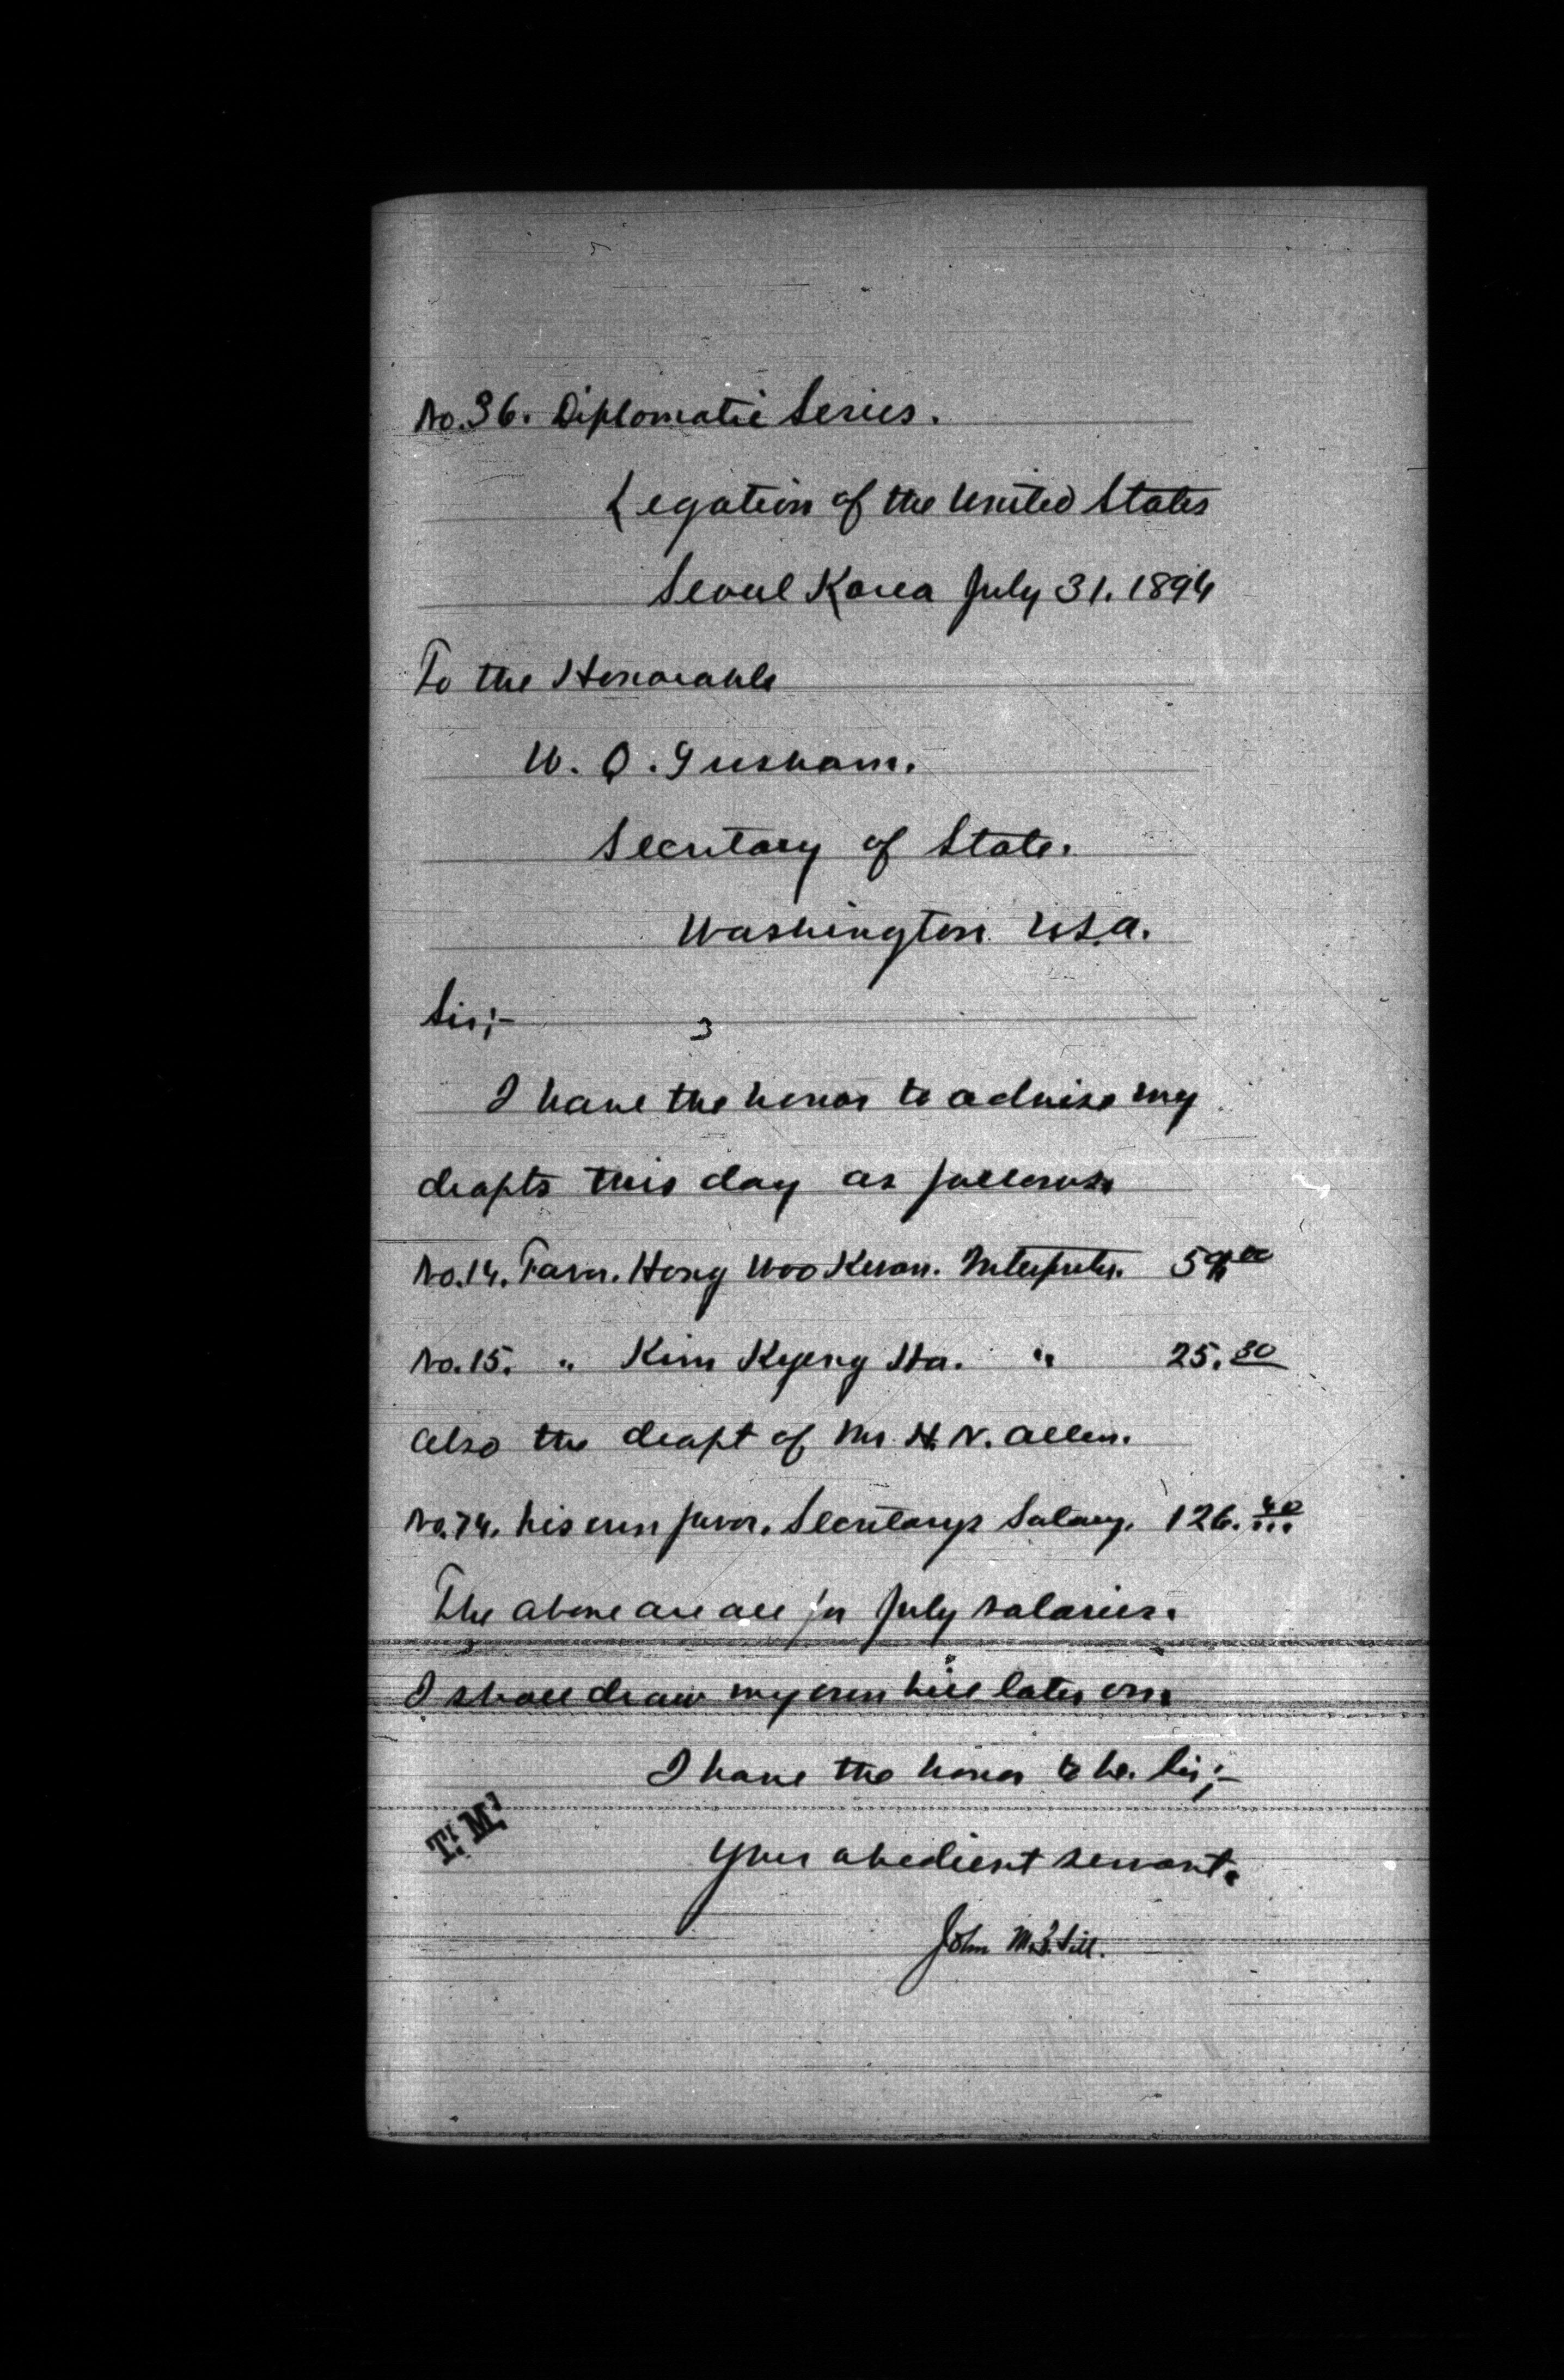 No.36. Diplomatic Series.
Legation of the United States
Seoul Korea July 31. 1894
To the Honorable
W. Q. Gresham.
Secretary of State.
Washington U.S.A.
Sir;-
I have the honor to advise my
drafts this day as follows.
No.14. Favor. Hong Woo Kwan. Interpreter.
No.15. " Kim Kyeng Ha. " 25.80
Also the draft of Mr H. N. Allen.
No.74. his own favor. Secretarys Salary. 126.40
The above are all for July salaries.
I shall draw my own bill later on.
I have the honor to be. Sir;-
Your obedient servant.
John M.B. Sill.
T. M.